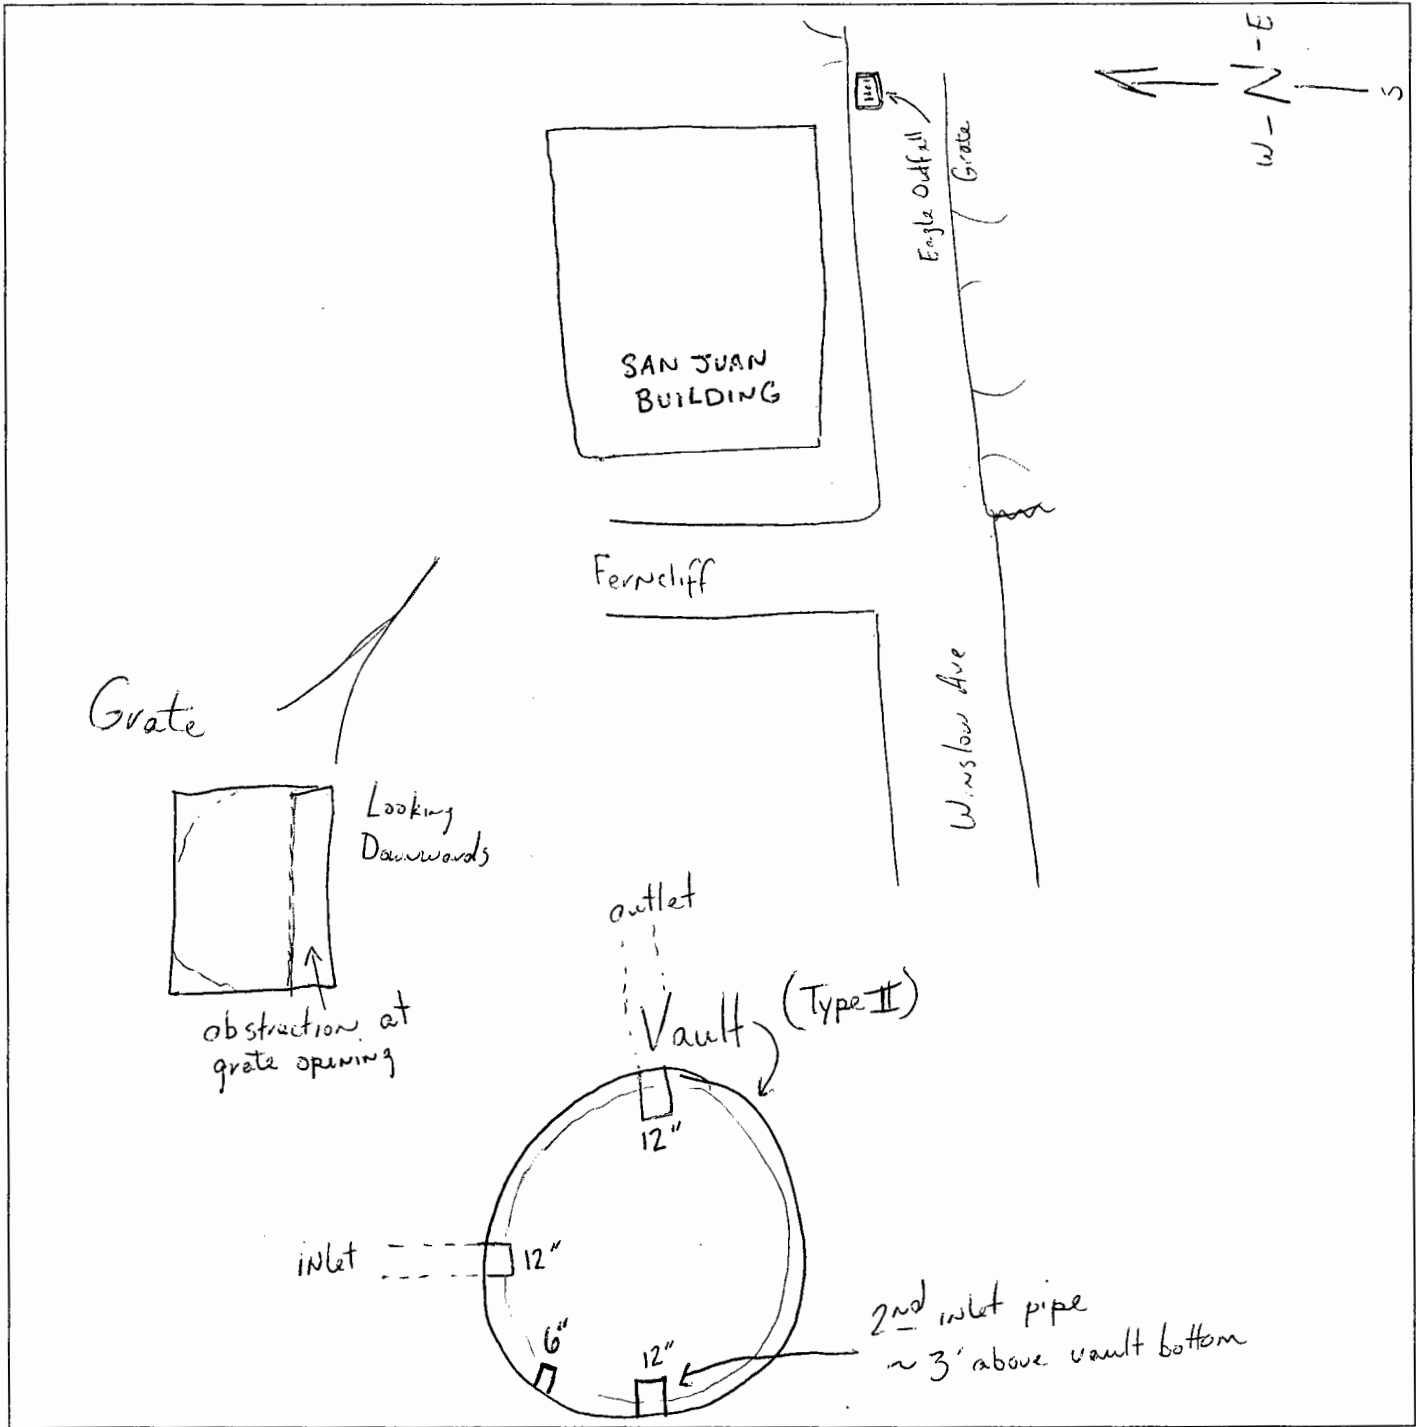 W - N - E
S
Eagle Outfall
Grate
SAN JUAN
BUILDING
Ferncliff
Winslow Ave
Grate
Looking
Downwards
obstruction at
grate opening
outlet
Vault (Type II)
12"
inlet
12"
6"
12"
2nd inlet pipe
~ 3' above vault bottom